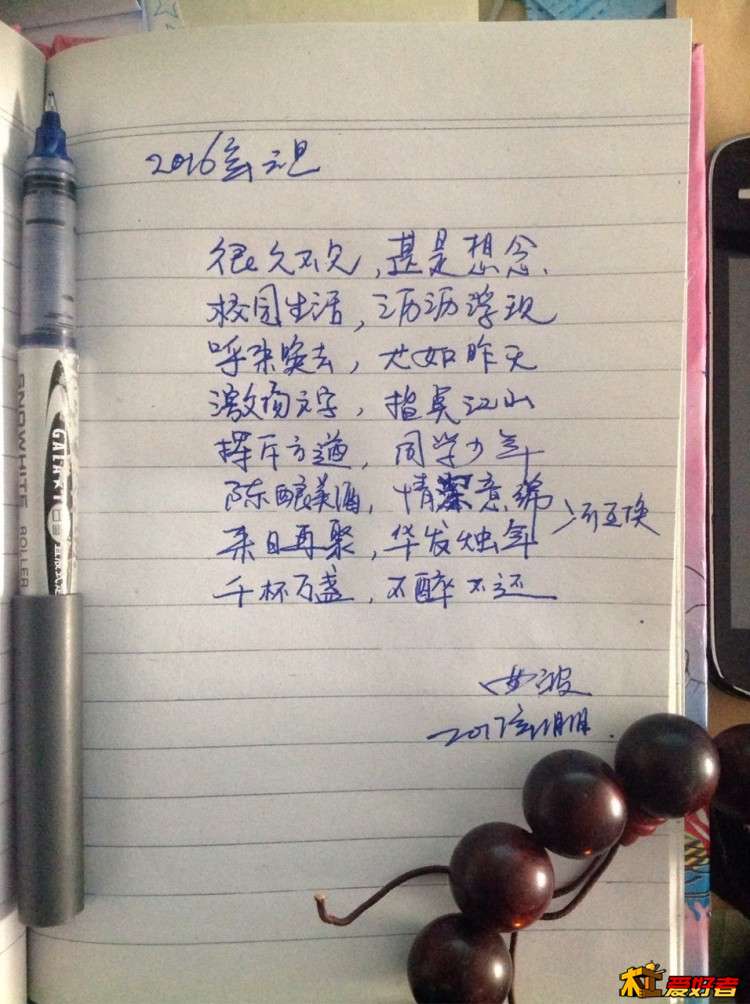 2016
很久不见,甚是想念.
校园生活,历历浮现
呼来唤去,尤如昨天
激扬文字,指点江山
挥斥方遒,同学少年
陈酿美酒,情深意绵
来日再聚,华发烛年
千杯万盏,不醉不还
互换
2017
SNOWHITE ROLLER
木工爱好者